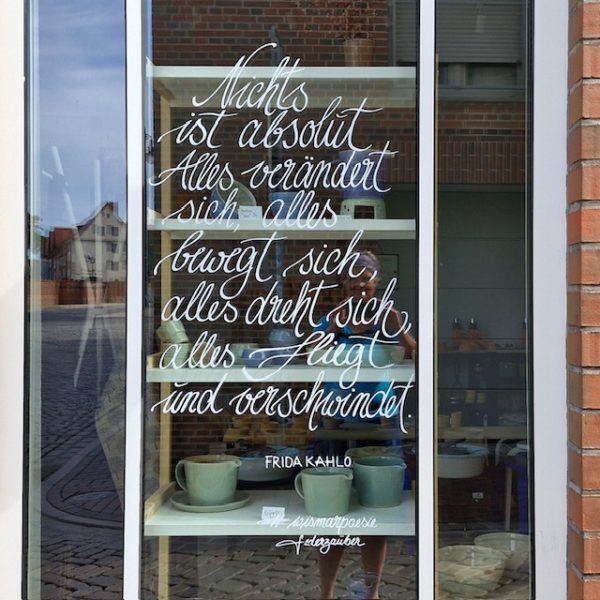 Nichts
ist absolut
Alles verändert
sich, alles
bewegt sich,
alles dreht sich,
alles fliegt
und verschwindet.
FRIDA KAHLO
# wismarpoesie
federzauber